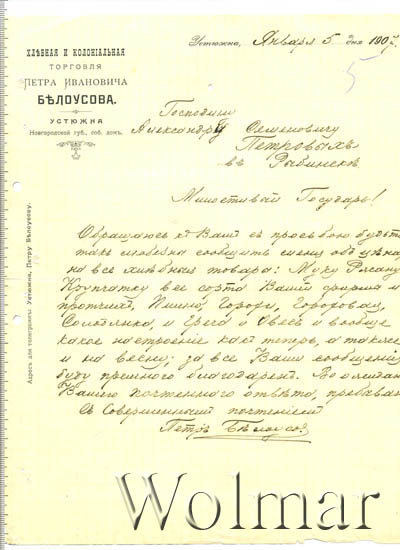 ХЛѢБНАЯ И КОЛОНІАЛЬНАЯ
ТОРГОВЛЯ
ПЕТРА ИВАНОВИЧА
БѢЛОУСОВА.
УСТЮЖНА
Новгородской губ., соб. домъ.
Устюжна, Января 5 дня 1907 г.
5
Господину
Александру Семеновичу
Петровыхъ
въ Рыбинскѣ
Милостивый Государь!
Обращаюсь къ Вамъ съ просьбою будьте
такъ любезны сообщить мнѣ объ цѣнахъ
на все хлѣбная товара: Муку Ржаную
Крупчатку все сорта Вашей фирмы и
протчихъ, Пшено, Горохъ,
и Греча и Овесъ и вообще
какое настроеніе какъ теперь, а также
и на весну; за все Ваши сообщенія
буду премного благодаренъ. Во ожидан
Вашего почтеннаго отвѣта, пребываю
Съ Совершеннымъ почтеніемъ
Петръ Бѣлоусовъ
Адресъ для телеграммъ: Устюжна, Петру Бѣлоусову.
Wolmar